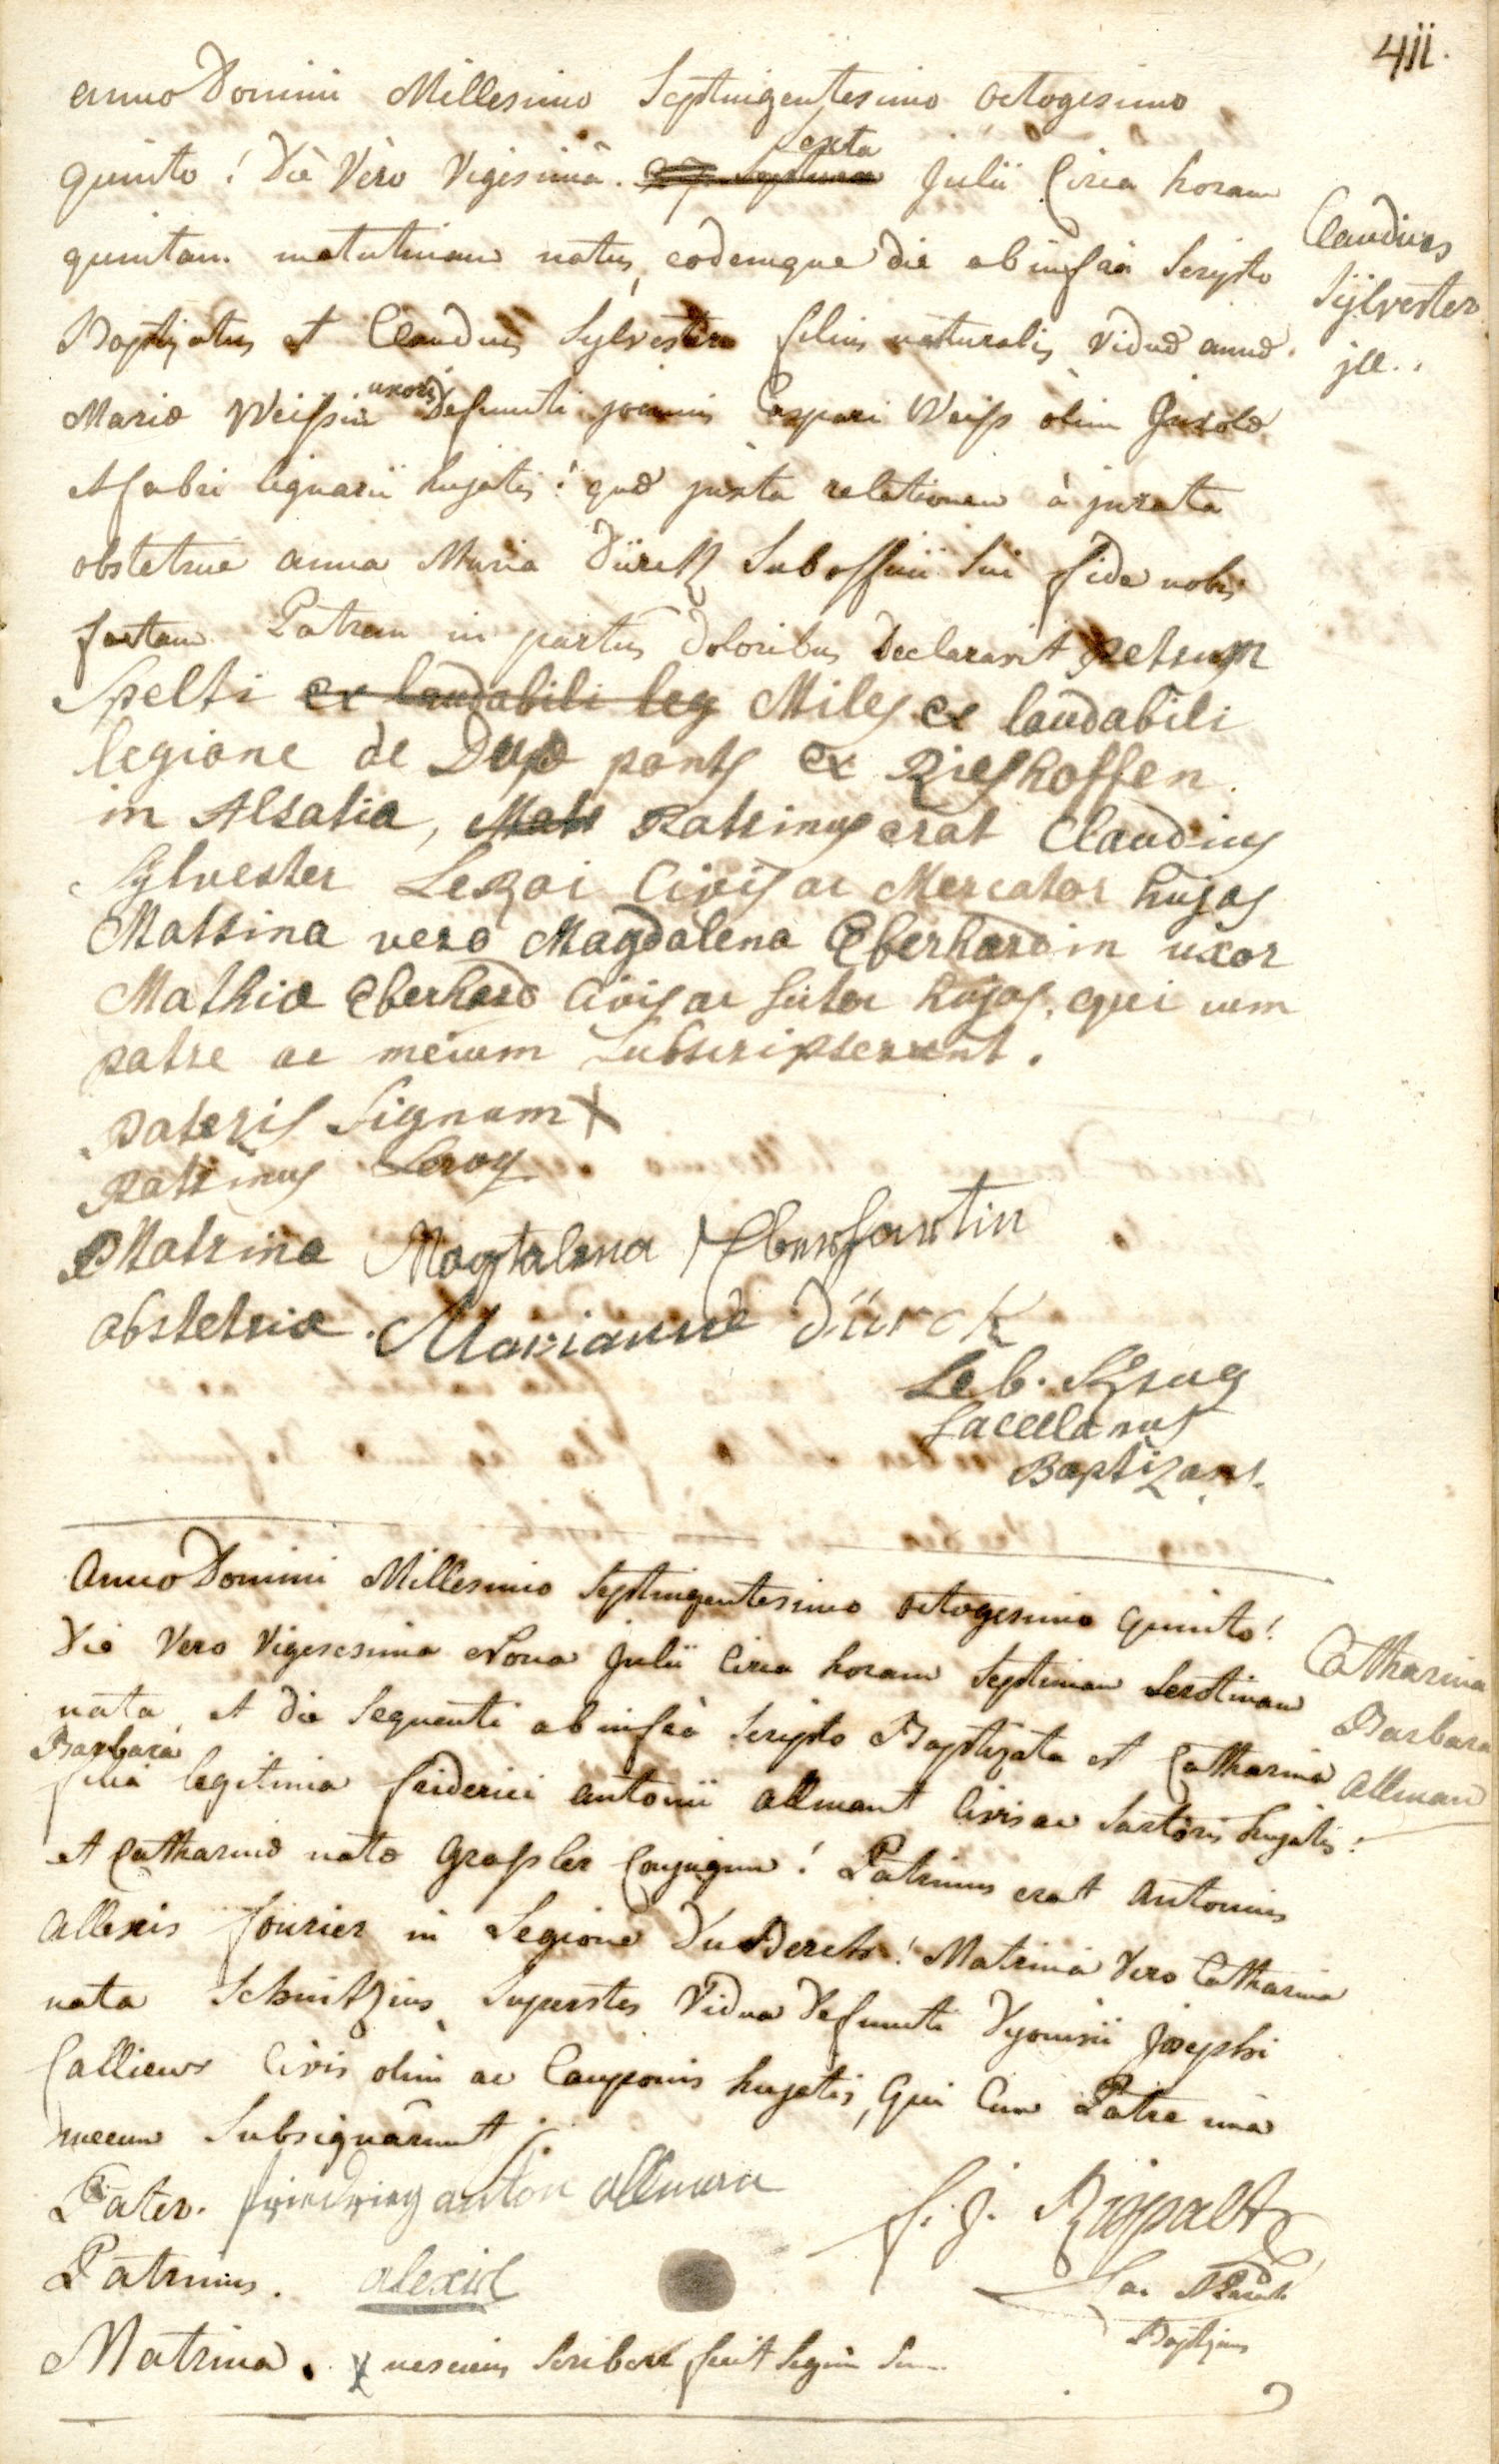 4ii.
anno Domini Millesimo Septingentesimo octogesimo
quinto! Die Vero Vigesimâ sexta Julii Circa horam
quintam matutinam natus, eodemque die ab infrà Scripto
Baptizatus et Claudius Sylvester filius naturalis Viduæ annæ
Mariæ Weissin uxoris Defuncti joannis Caspari Weiss olim Incolæ
et fabri lignarii hujatis! quæ juxta relationem à jurata
obstetrice anna Maria Dürck sub officii sui fide nobis
factam Patrem in partus Doloribus Declaravit Petrum
Spelti ex laudabili leg Miles ex laudabili
legione de Dup ponts ex Rieshoffen
in Alsatia, Matr Patrinus erat Claudius
Sylvester LeRoi Civis ac Mercator hujas
Matrina vero Magdalena Eberhardin uxor
Mathiæ Eberhard Civis ac sutor hujas, qui cum
patre ac mecum subscripserunt.
Pateris Signum X
Patrinus Leroy
Matrina Magtalena Eberhartin
obstetrix. Marianne Dürck
Seb. Krug
Sacellanus
Baptizans.
Claudius
Sÿlvester
jll..
Anno Domini Millesimo Septingentesimo octogesimo quinto!
Die Vero Vigesesima Nona Julii Circa horam Septimam Serotinam
nata, et die Sequenti ab infrà Scripto Baptizata et Catharina
Barbara
filia legitima friderici antonii allmant Civis ac Sartoris hujatis!
et Catharinæ natæ Grassler Conjugum! Patrinus erat Antonius
Allexis fourier in Legione Matrina Vero Catharina
nata Superstes Vidua Defuncti Dyonisii Josephi
Callieux Civis olim ac Cauponis hujatis, Qui Cum Patre unà
mecum Subsignârunt
Pater. anton allman
Patrinus. alexis
Matrina. X nesciens Scribere fecit Signum
Catharina
Barbara
allman
f. j. Rigpalt
Baptizans